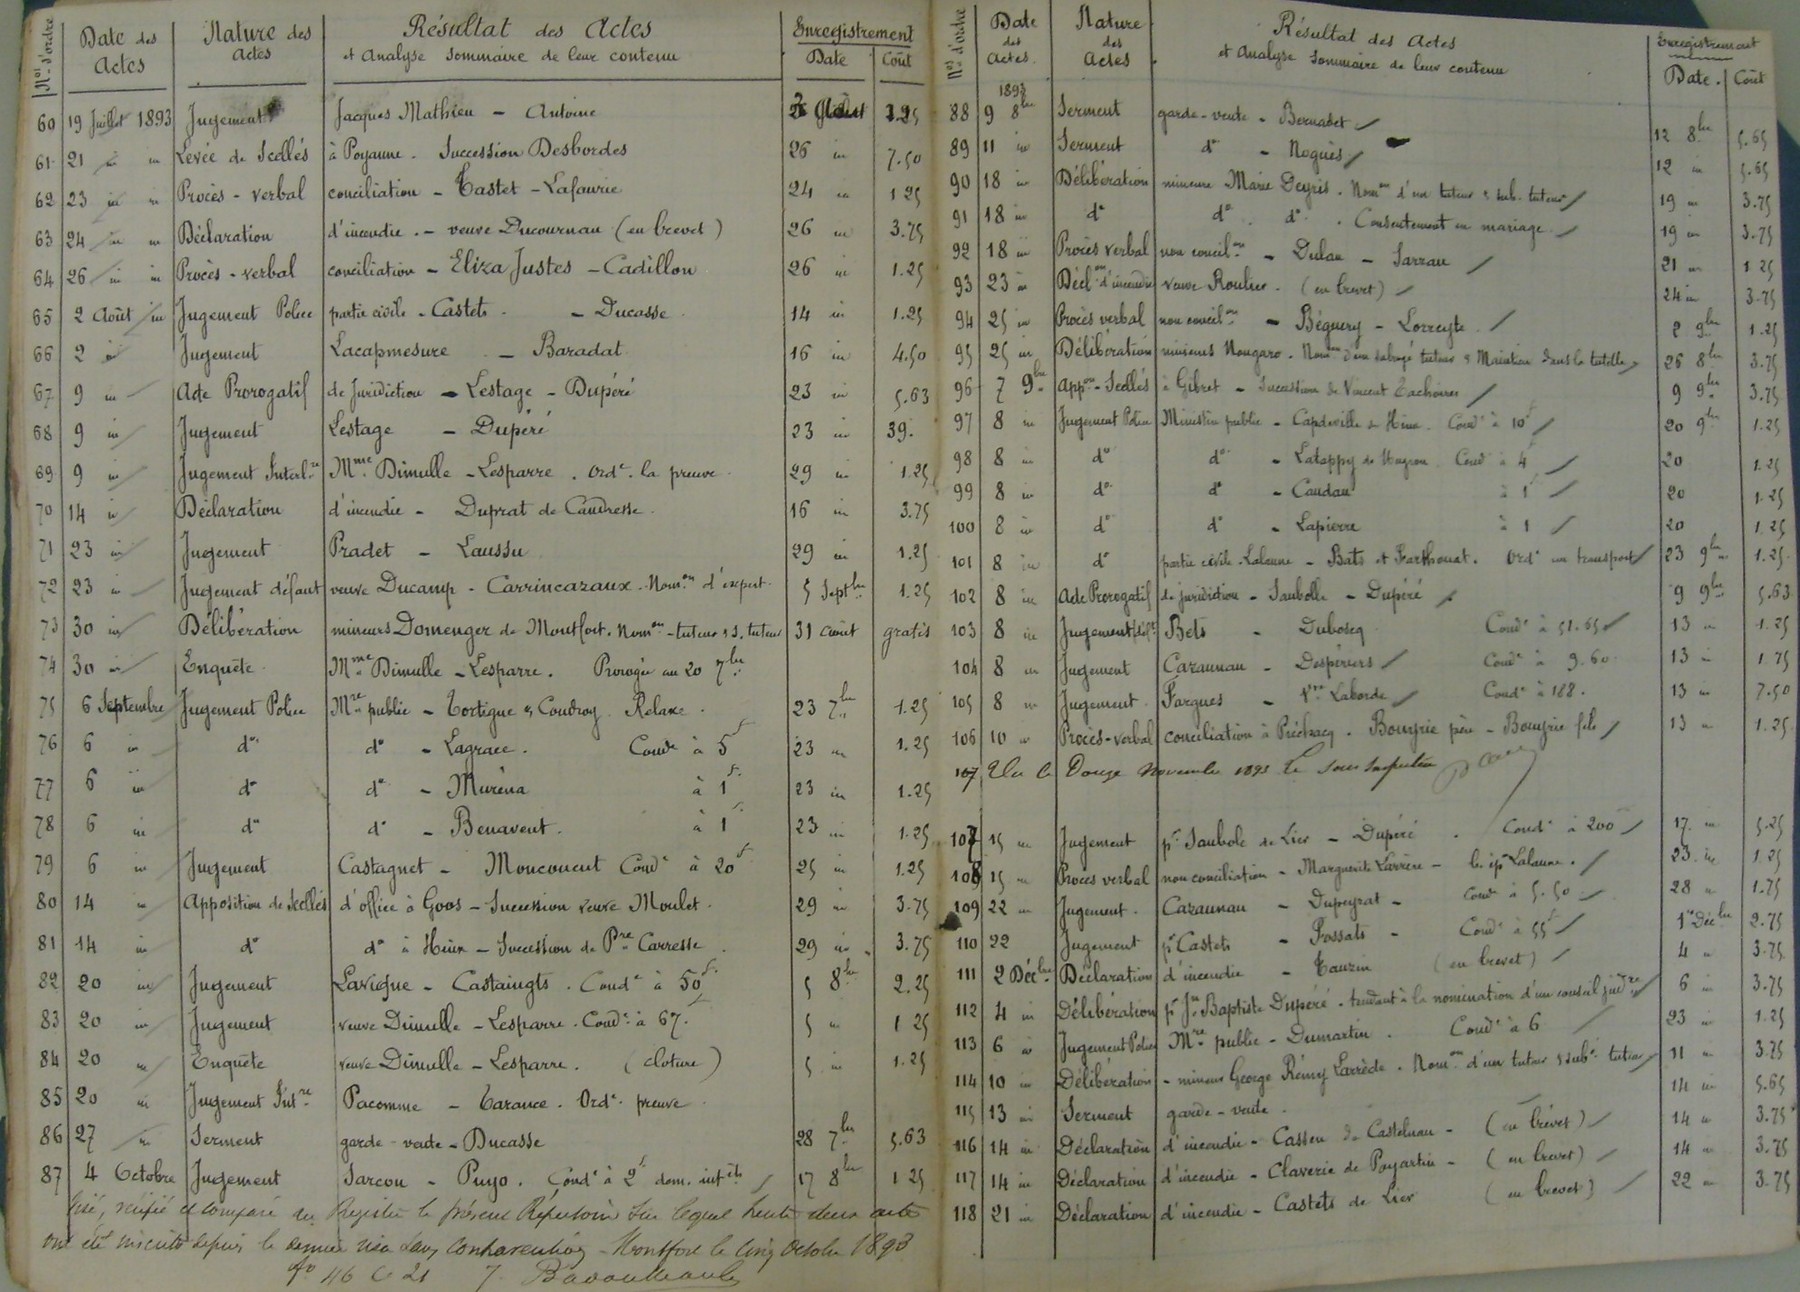 Nos d'ordre | Date des Actes | Nature des Actes | Résultat des Actes et Analyse Sommaire de leur contenu | Enregistrement Date | Coût
60 | 19 Juillet 1893 | Jugement | Jacques Mathieu - Antoine | 1.25
61 | 21 in in | Levée de Scellés | à Poyanne. Succession Desbordes | 26 in | 7.50
62 | 23 in in | Procès-verbal | conciliation - Tastet - Lafaurie | 24 in | 1 25
63 | 24 in in | Déclaration | d'incendie. - veuve Ducournau (en brevet) | 26 in | 3.75
64 | 26 in in | Procès-verbal | conciliation - Eliza Justes - Cadillon | 26 in | 1.25
65 | 2 Août in | Jugement Police | partie civile - Castets. - Ducasse | 14 in | 1.25
66 | 2 in | Jugement | Lacapmesure - Baradat | 16 in | 4.50
67 | 9 in | Acte Prorogatif | de Juridiction - Lestage - Dupéré | 23 in | 5.63
68 | 9 in | Jugement | Lestage - Dupéré | 23 in | 39.
69 | 9 in | Jugement Interl.re | Mme Dimulle - Lesparre. Ord.e la preuve | 29 in | 1.25
70 | 14 in | Déclaration | d'incendie - Duprat de Candresse | 16 in | 3.75
71 | 23 in | Jugement | Pradet - Laussu | 29 in | 1.25
72 | 23 in | Jugement défaut | veuve Ducamp - Carrincazaux. Nom.on d'expert | 5 Septbre | 1.25
73 | 30 in | Délibération | mineurs Domenger de Montfort. Nom.on - tuteur & S. tuteur | 31 août | gratis
74 | 30 in | Enquête | Mme Dimulle - Lesparre. Prorogée au 20 7bre
75 | 6 Septembre | Jugement Police | Mre public - Tortigue & Coudroy Relaxe. | 23 7bre | 1.25
76 | 6 in | do | do - Lagrace. Cond.e à 5f | 23 in | 1.25
77 | 6 in | do | do - Muréna à 1f. | 23 in | 1.25
78 | 6 in | do | do - Benavent. à 1f. | 23 in | 1.25
79 | 6 in | Jugement | Castagnet - Moncoucut Cond.e à 20f | 25 in | 1.25
80 | 14 in | Apposition de Scellés | d'office à Goos - Succession veuve Moulet. | 29 in | 3.75
81 | 14 in | do | do à Hinx - Succession de Pre Carresse | 29 in | 3.75
82 | 20 in | Jugement | Lavigne - Castaingts. Cond.e à 50f. | 5 8bre | 2.25
83 | 20 in | Jugement | veuve Dimulle - Lesparre. Cond.e à 67f. | 5 in | 1 25
84 | 20 in | Enquête | veuve Dimulle - Lesparre. (cloture) | 5 in | 1.25
85 | 20 in | Jugement Int.re | Pacomme - Tarance. Ord.e preuve
86 | 27 in | Serment | garde-vente - Ducasse | 28 7bre | 5.63
87 | 4 Octobre | Jugement | Sarcou - Puyo. Cond.e à 2f dom. int.ts | 17 8bre | 1 25
Visé, vérifié et comparé au Registre le présent Répertoire sur lequel trente deux actes
ont été inscrits depuis le dernier visa sans contravention - Montfort le cinq Octobre 1893
Nos d'ordre | Date des Actes. | Nature des Actes | Résultat des Actes et Analyse Sommaire de leur contenu | Enregistrement Date. | Coût
1893
88 | 9 8bre | Serment | garde-vente - Bernadet | 12 8bre | 5.65
89 | 11 in | Serment | do - Noguès | 12 in | 5.65
90 | 18 in | Délibération | mineure Marie Deyris. Nom.on d'un tuteur & sub. tuteur | 19 in | 3.75
91 | 18 in | do | do do. Consentement en mariage | 19 in | 3.75
92 | 18 in | Procès verbal | non concil.on - Dulau - Sarrau | 21 in | 1 25
93 | 23 in | Décl.on d'incendie | veuve Roulier. (en brevet) | 24 in | 3.75
94 | 25 in | Procès verbal | non concil.on - Béguery - Lorreyte | 2 9bre | 1.25
95 | 25 in | Délibération | mineurs Nougaro. Nom.on d'un subrogé tuteur & Maintien dans la tutelle | 26 8bre | 3.75
96 | 7 9bre | App.on - Scellés | à Gibret - Succession de Vincent | 9 9bre | 3.75
97 | 8 in | Jugement Police | Ministère public - Capdeville de Hinx. Cond.e à 10f | 20 9bre | 1.25
98 | 8 in | do | do - Latappy de Mugron. Cond.e à 4f | 20 | 1.25
99 | 8 in | do | do - Caudau à 1f | 20 | 1.25
100 | 8 in | do | do - Lapierre à 1 | 20 | 1 25
101 | 8 in | do | partie civile. Lalanne - Bats et Farthouat. Ord.e un transport | 23 9bre | 1.25
102 | 8 in | Acte Prorogatif | de juridiction - Saubolle - Dupéré | 9 9bre | 5.63
103 | 8 in | Jugement déf.t | Bets - Duboscq Cond.e à 51.65 | 13 in | 1.25
104 | 8 in | Jugement | Cazaunau - Despériers Cond.e à 9.60 | 13 in | 1.75
105 | 8 in | Jugement | Fargues - Vve Laborde Cond.e à 188. | 13 in | 7.50
106 | 10 in | Procès-verbal | conciliation à Préchacq. Bourrié père - Bourrié fils | 13 in | 1.25
107 Vu le Douze Novembre 1893 Le Sous Inspecteur
107 | 15 in | Jugement | pr Saubole de Lier - Dupéré. Cond.e à 200 | 17 in | 5.25
108 | 15 in | Procès verbal | non conciliation - Marguerite Larrère - Lalanne. | 23 in | 1 25
109 | 22 in | Jugement. | Cazaunau - Dupeyrat - Cond.e à 5.50 | 28 in | 1.75
110 | 22 | Jugement | pr Castets - Fossats - Cond.e à 55f | 1er Décbre | 2.75
111 | 2 Décbre | Déclaration | d'incendie - Tauzin (en brevet) | 4 in | 3.75
112 | 4 in | Délibération | pr Jn Baptiste Dupéré. tendant à la nomination d'un conseil judre | 6 in | 3.75
113 | 6 in | Jugement Police | Mre public - Dumartin. Cond.e à 6 | 23 in | 1.25
114 | 10 in | Délibération | - mineur George Rémy Larrède. Nom.on d'un tuteur & sub. tuteur | 11 in | 3.75
115 | 13 in | Serment | garde-vente. | 14 in | 5.65
116 | 14 in | Déclaration | d'incendie - Cassen de Castelnau - (en brevet) | 14 in | 3.75
117 | 14 in | Déclaration | d'incendie - Claverie de Poyartin - (en brevet) | 14 in | 3.75
118 | 21 in | Déclaration | d'incendie - Castets de Lier (en brevet) | 22 in | 3.75